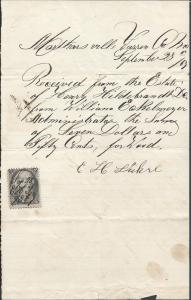 Marthasville Warren Co Mo
September 2
Received from the Estate
of Henry Hildebrandt De
from William
Administrator the Sum
of Seven Dollars and
Fifty Cents, for
E H